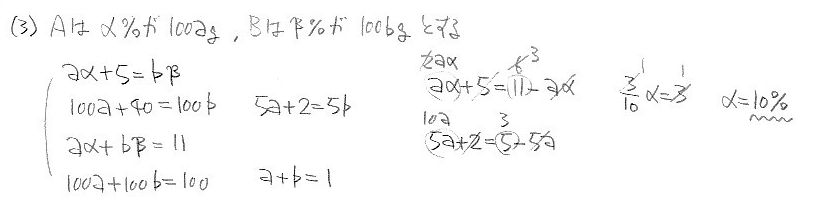 (3) Aは α%が 100ag , Bは β%が 100bg とする
aα+5=bβ
100a+40=100b 5a+2=5b
aα+bβ=11
100a+100b=100 a+b=1
2aα 6 3
aα+5=11-aα
10a 3
5a+2=5-5a
3/10 α=3 1 1
α=10%